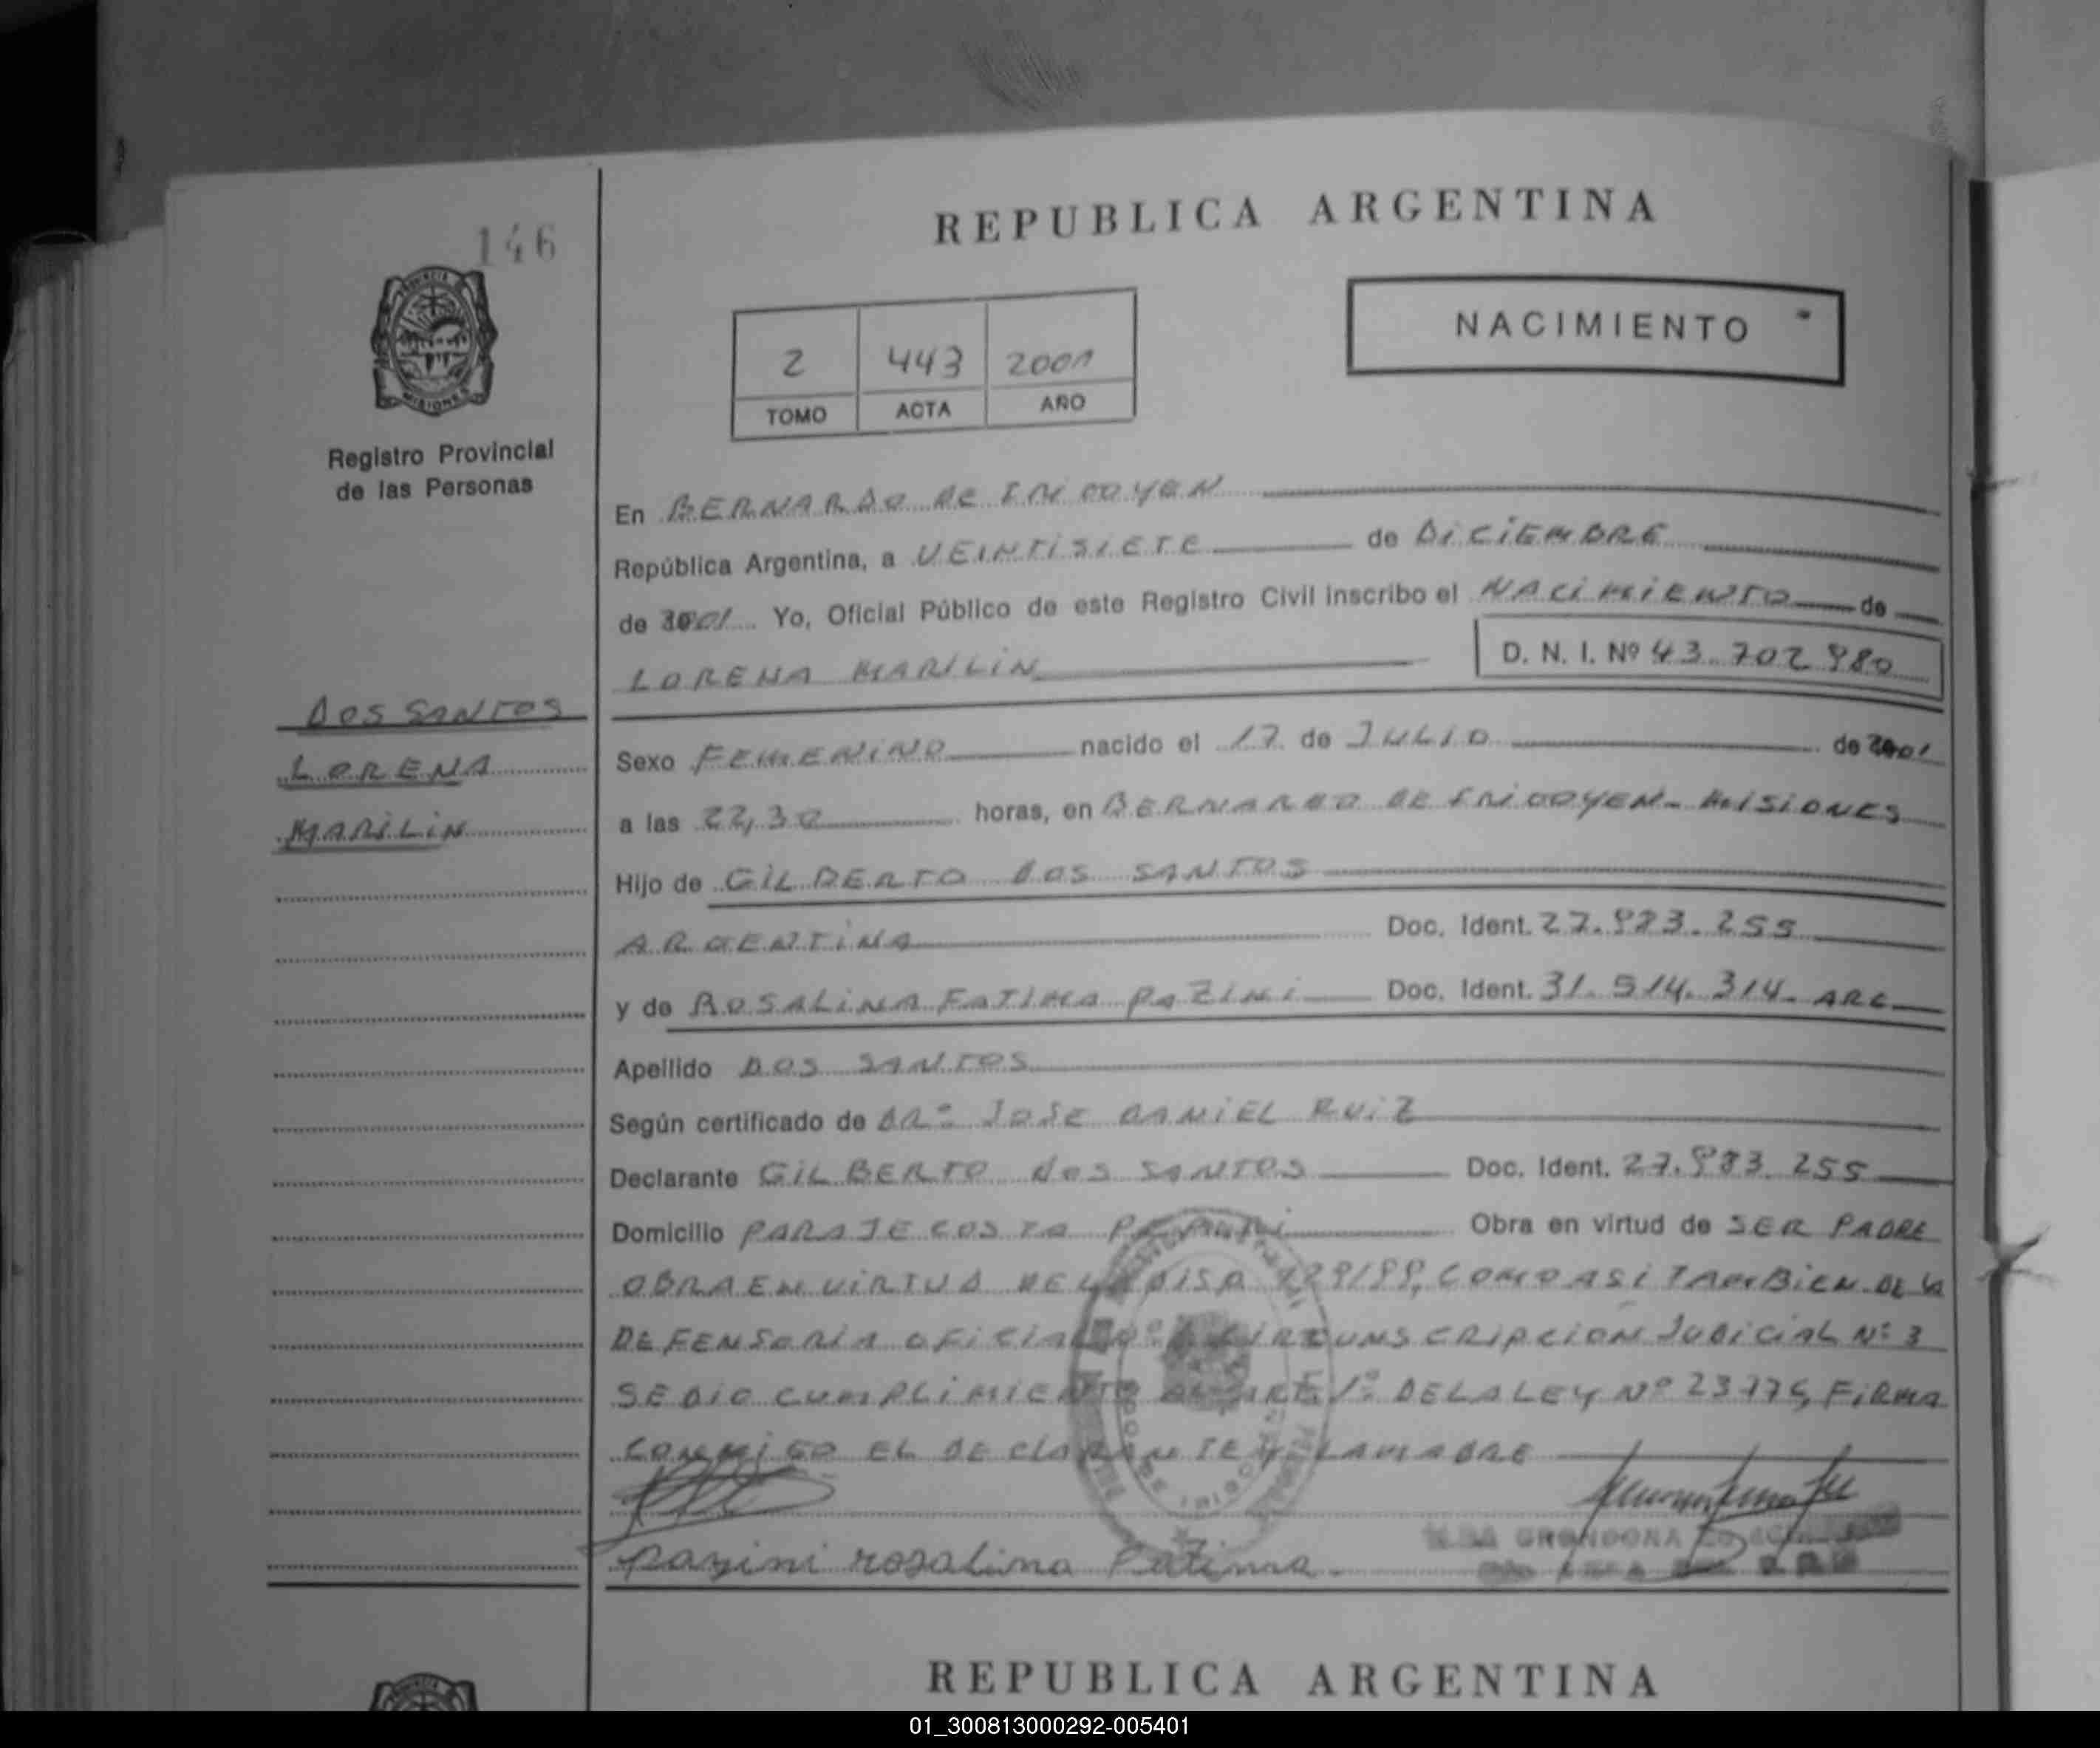 146
REPUBLICA ARGENTINA
NACIMIENTO
2 443 2001
TOMO ACTA AÑO
PROVINCIA
MISIONES
Registro Provincial
de las Personas
En BERNARDO DE IRIGOYEN
República Argentina, a VEINTISIETE de DICIEMBRE
de 2001 Yo, Oficial Público de este Registro Civil inscribo el NACIMIENTO de
LORENA MARILIN D. N. I. Nº 43.702.980
DOS SANTOS
LORENA
MARILIN
Sexo FEMENINO nacido el 17 de JULIO de 2001
a las 22,30 horas, en BERNARDO DE IRIGOYEN- MISIONES
Hijo de GILBERTO DOS SANTOS
ARGENTINA Doc. Ident. 27.983.255
y de ROSALINA FATIMA PAZINI Doc. Ident. 31.514.314- ARG
Apellido DOS SANTOS
Según certificado de DRº JOSE DANIEL RUIZ
Declarante GILBERTO DOS SANTOS Doc. Ident. 27.983.255
Domicilio PARAJE COSTA Obra en virtud de SER PADRE
OBRA EN VIRTUD DE LA DISP. COMO ASI TAMBIEN DE LA
DEFENSORIA OFICIAL CIRCUNSCRIPCION JUDICIAL Nº 3
SE DIO CUMPLIMIENTO AL ART 1º DE LA LEY Nº FIRMA
CONMIGO EL DECLARANTE Y LA MADRE
pazini rosalina Fatima.
GRONDONA
REPUBLICA ARGENTINA
01_300813000292-005401